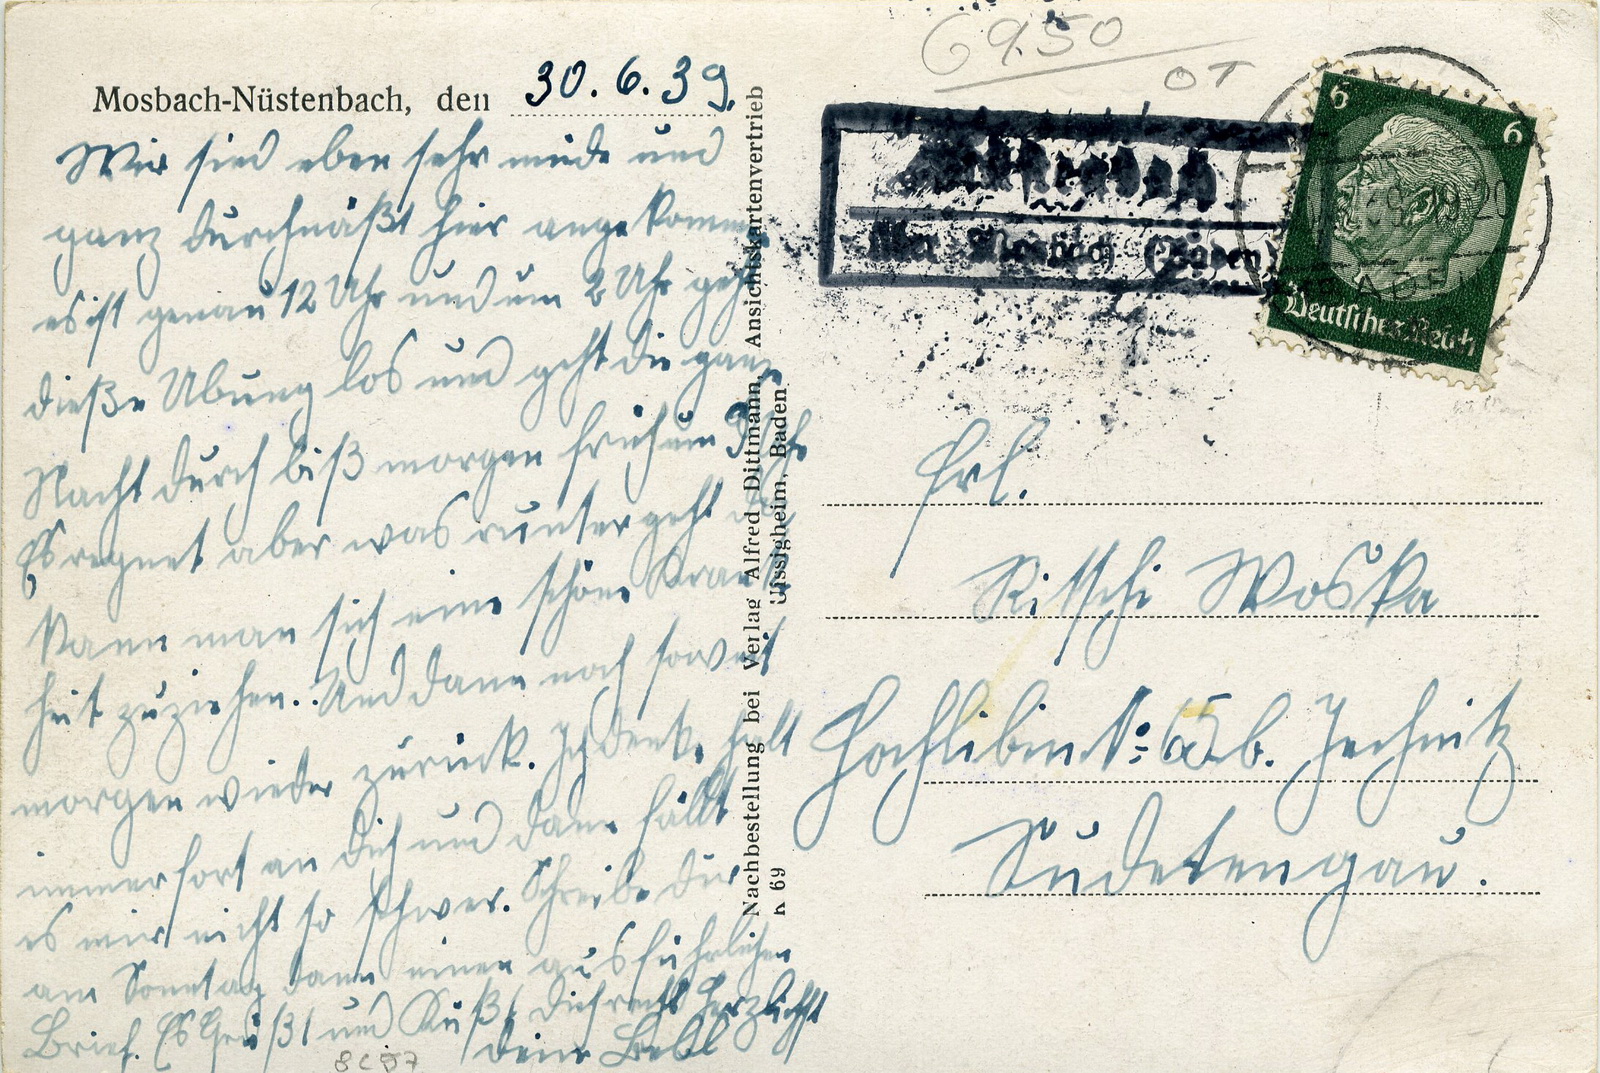 Mosbach-Nüstenbach, den 30.6.39.
Wir sind eben sehr müde und
ganz durchnäßt hier angekommen
es ist genau 12 Uhr und um 2 Uhr geht
dieße Übung los und geht die ganze
Nacht durch biß morgen früh um 9 Uhr
Es regnet aber was runter geht da
kann man sich eine schöne Krank
heit zuziehen. Und dann noch soweit
morgen wieder zurück. Ich denke halt
immerfort an Dich und dann fällt
es mir nicht so schwer. Schreibe dir
am Sonntag dann einen ausführlichen
Brief. Es Grüßt und Küßt dich recht herzlichst
dein
8C57
Nachbestellung bei Verlag Alfred Dittmann, Ansichtskartenvertrieb
Uissigheim, Baden
K 69
69.50
OT
über Mosbach (Baden)
6
6
Deutsches Reich
Frl.
Ritschi Woska
Hochlibin No. 65 b. Jechnitz
Sudetengau.